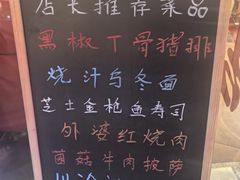 店长推荐菜品
黑椒T骨猪排
烧汁乌冬面
芝士金枪鱼寿司
外婆红烧肉
菌菇牛肉披萨